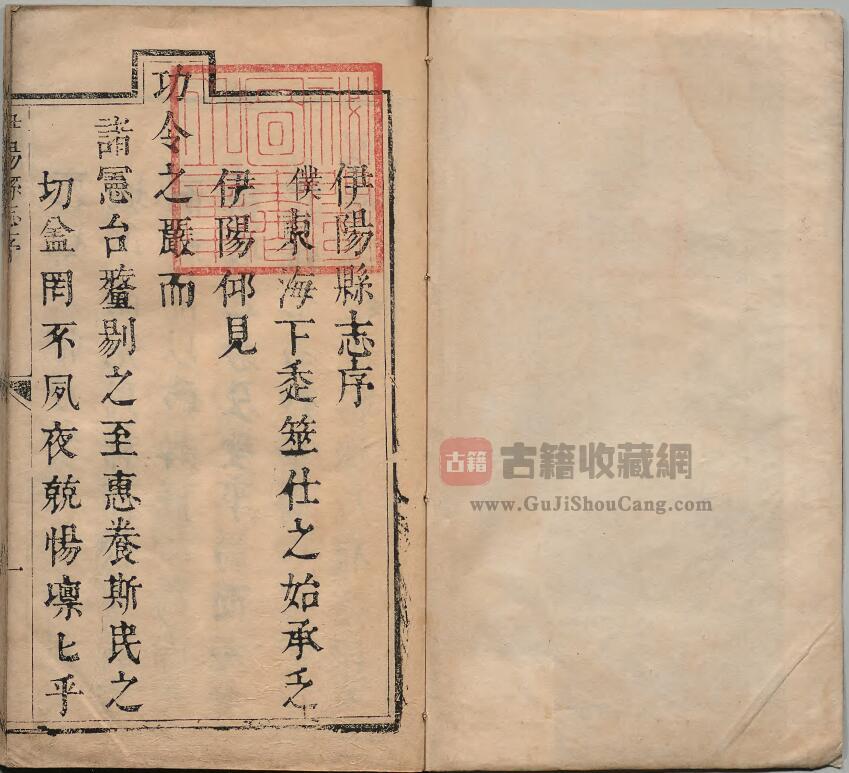 伊陽縣志序
僕東海下走筮仕之始承乏
伊陽仰見
功令之嚴而
諸憲台釐剔之至惠養斯民之
切盆罔不夙夜兢惕凜匕乎
伊陽縣志序
一
古籍
古籍收藏網
www.GuJiShouCang.com